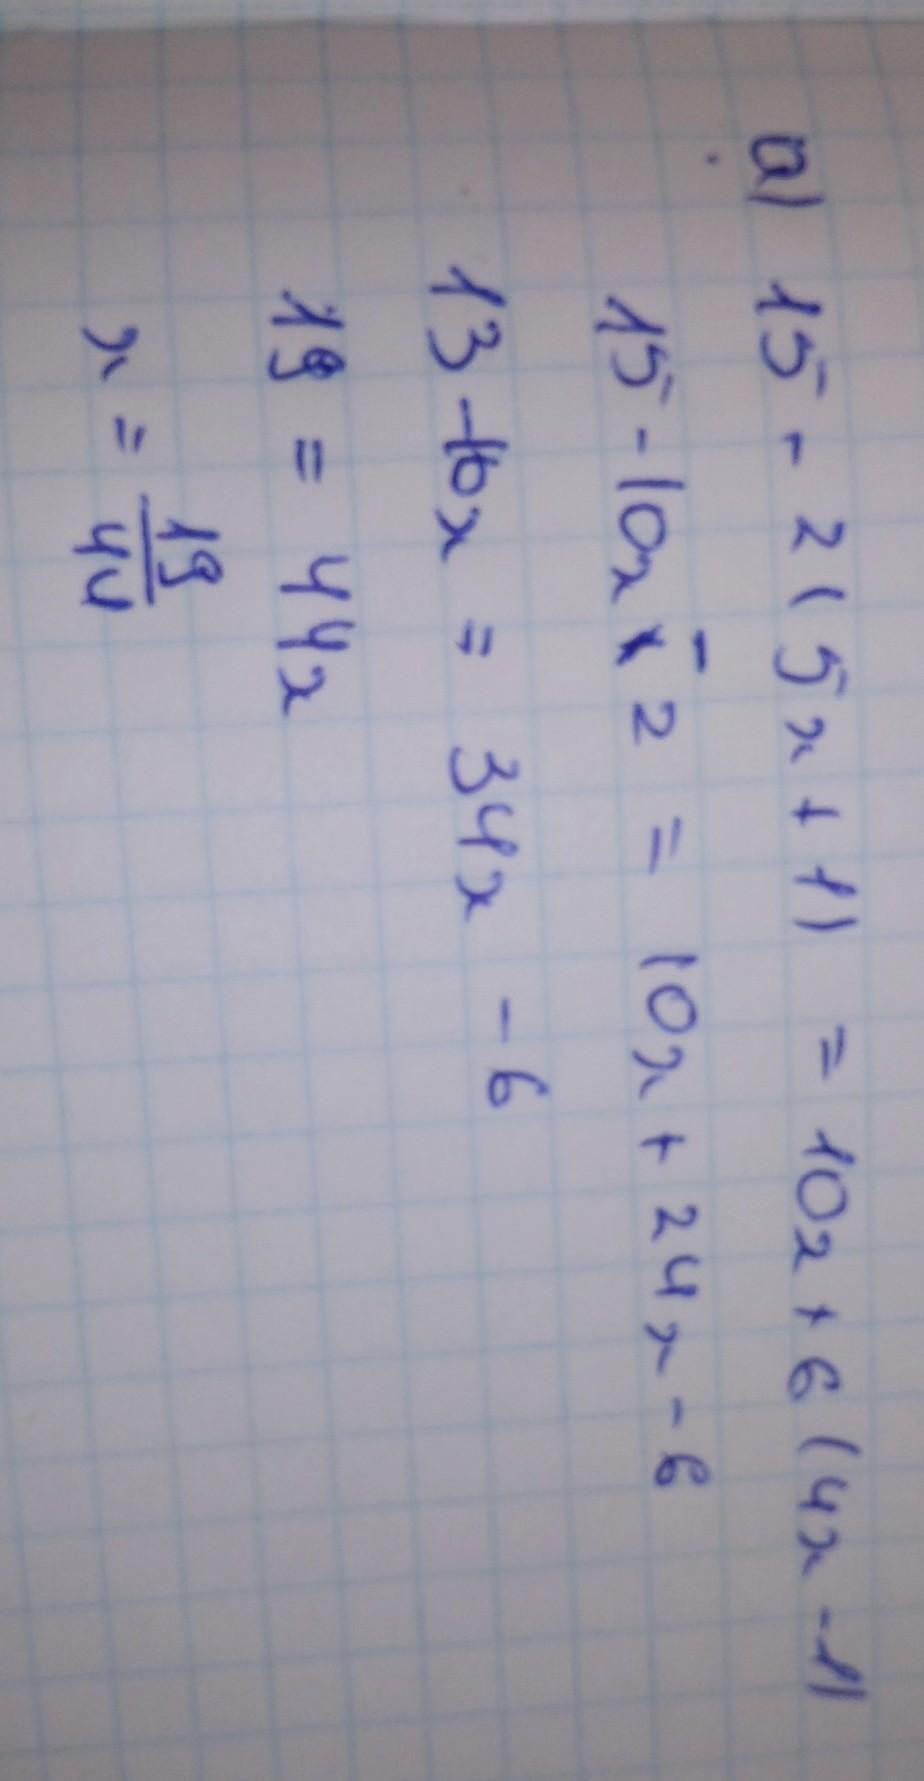 a) 15 - 2(5x + 1) = 10x + 6(4x - 1)
15 - 10x - 2 = 10x + 24x - 6
13 - 10x = 34x - 6
19 = 44x
x = 19/44